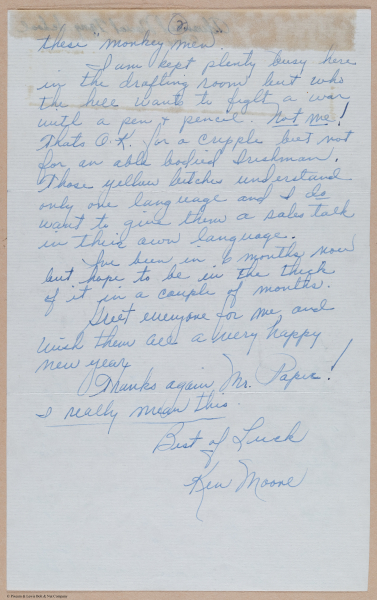 (2)
these "monkey men."
I am kept plenty busy here
in the drafting room but who
the hell wants to fight a war
with a pen & pencil. Not me!
Thats O.K. for a cripple but not
for an able bodied Irishman.
Those yellow bitches understand
only one language and I do
want to give them a sales talk
in their own language.
I've been in 6 months now
but hope to be in the thick
of it in a couple of months.
Greet everyone for me and
wish them all a very happy
new year.
Thanks again Mr. Papis!
I really mean this.
Best of Luck
Ken Moore